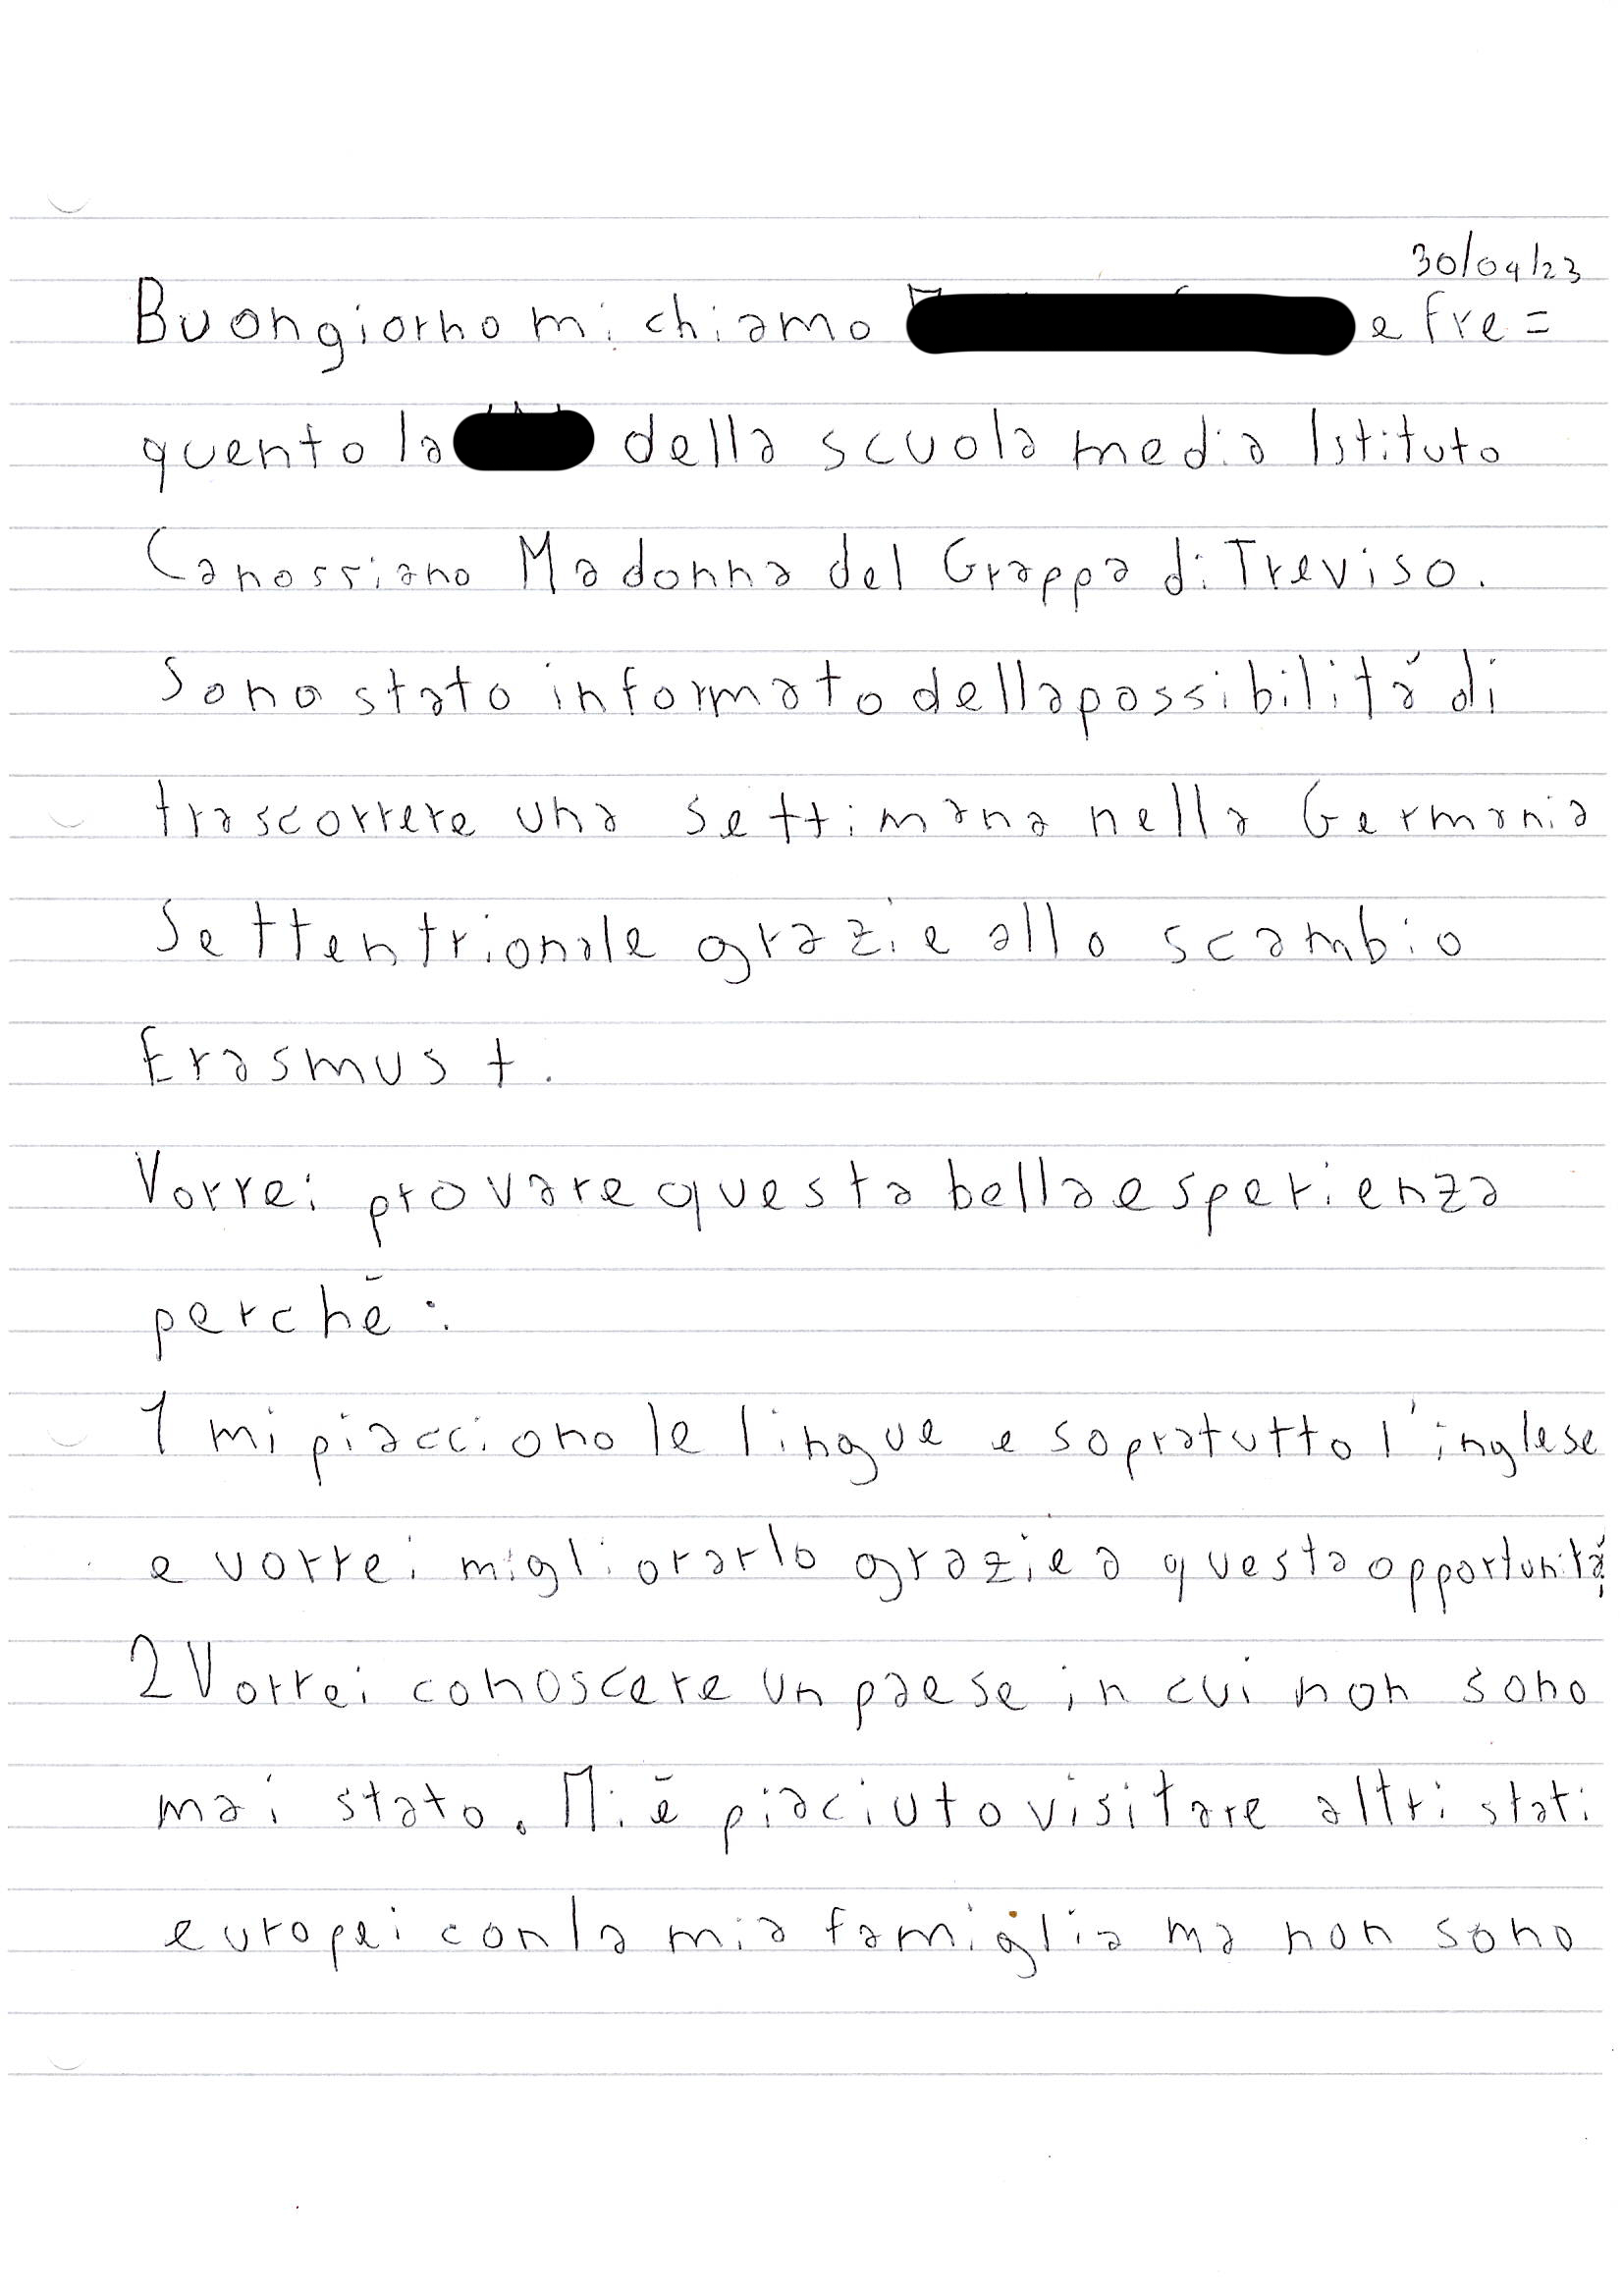 30/04/23
Buongiorno mi chiamo e fre=
quento la della scuola media Istituto
Canossiano Madonna del Grappa di Treviso.
Sono stato informato della possibilità di
trascorrere una settimana nella Germania
Settentrionale grazie allo scambio
Erasmus +.
Vorrei provare questa bella esperienza
perchè:
1 mi piacciono le lingue e sopratutto l'inglese
e vorrei migliorarlo grazie a questa opportunità;
2 Vorrei conoscere un paese in cui non sono
mai stato. Mi è piaciuto visitare altri stati
europei con la mia famiglia ma non sono